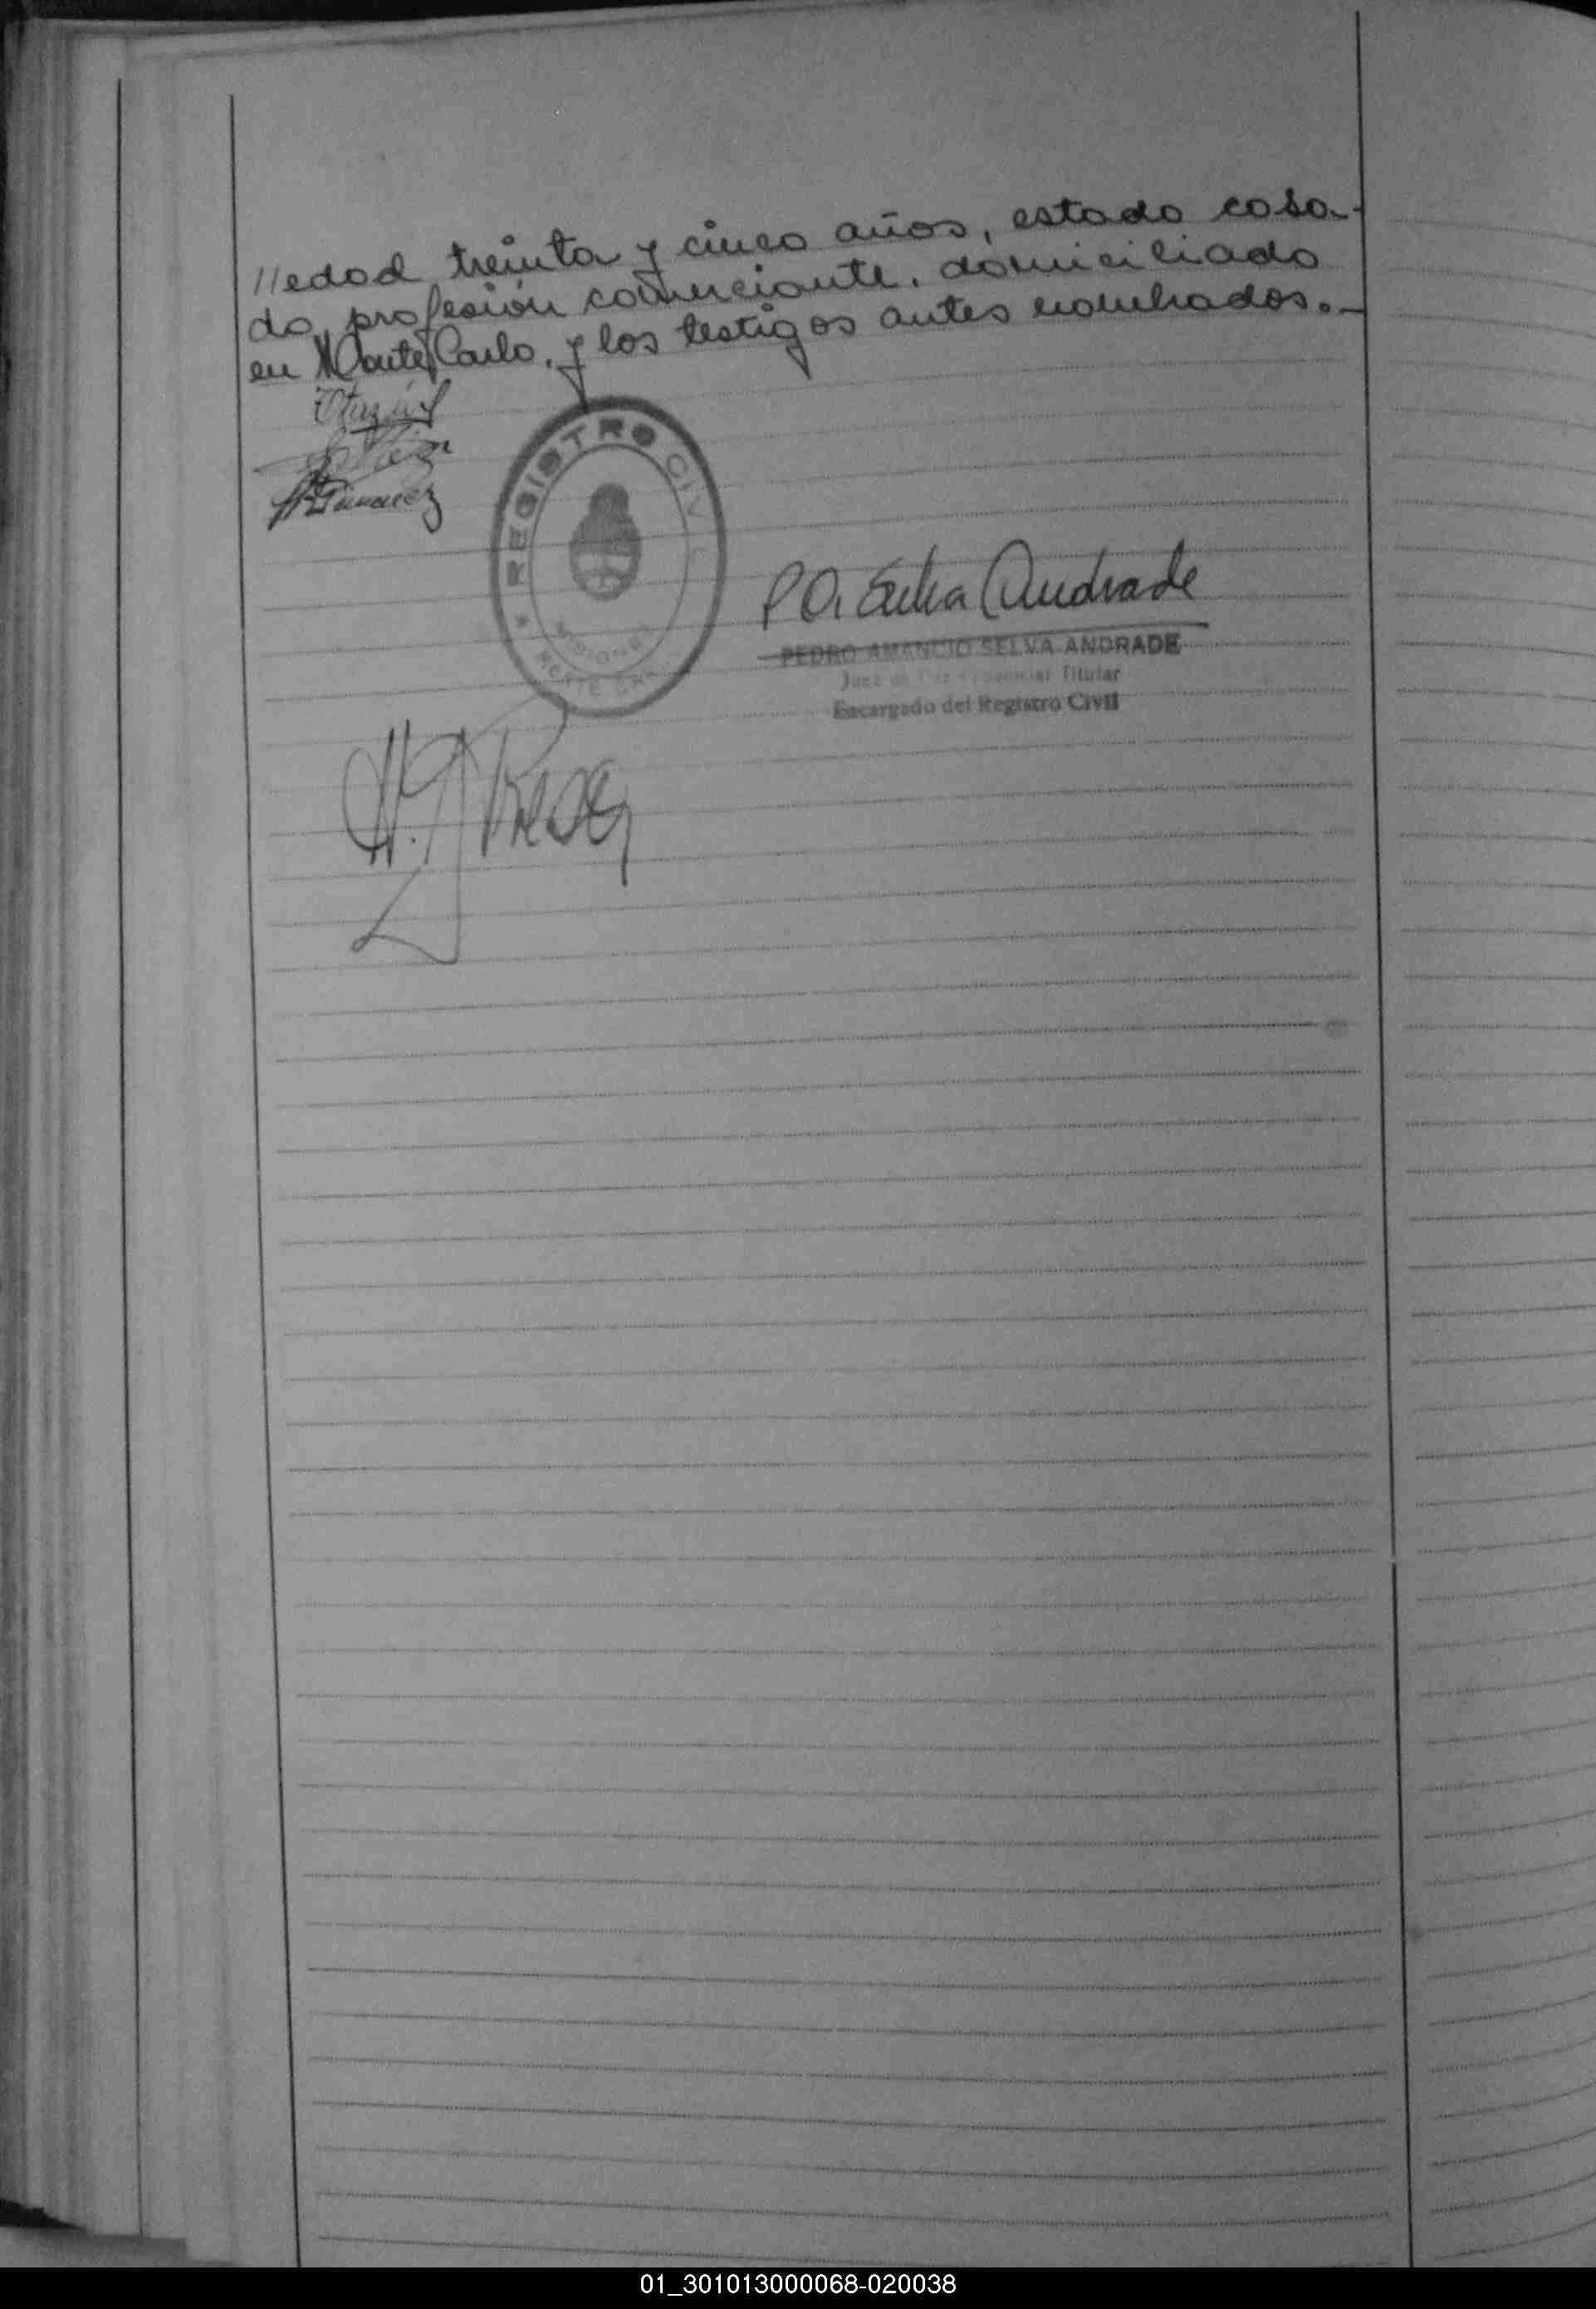 //edad treinta y cinco años, estado casa-
do, profesión comerciante, domiciliado
en Monte Carlo, y los testigos antes nombrados.-
REGISTRO CIVIL
MISIONES
MONTE CARLO
P. A. Selva Andrade
PEDRO AMANCIO SELVA ANDRADE
Juez de Paz Titular
Encargado del Registro Civil
01_301013000068-020038